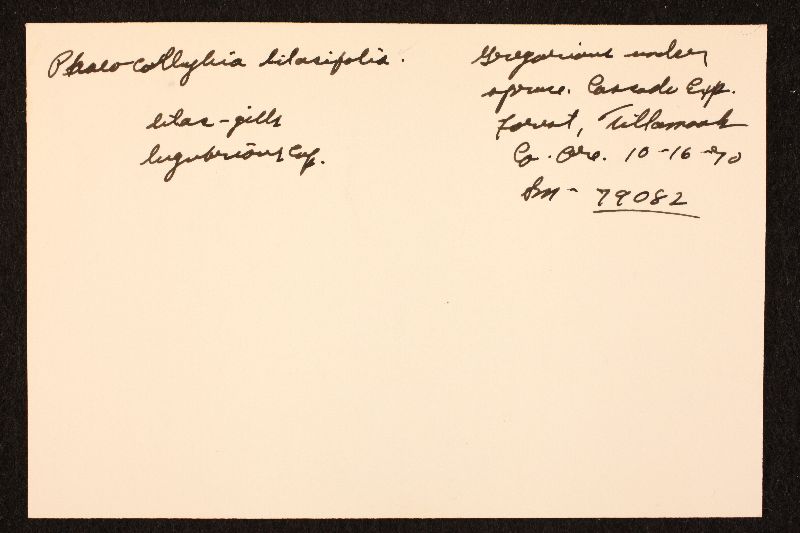 Phaeocollybia lilacifolia.
lilac-gills
lugubrious Cap.
Gregarious under
spruce. Cascade Exp.
Forest, Tillamook
Co. Ore. 10-16-70
Sm- 79082